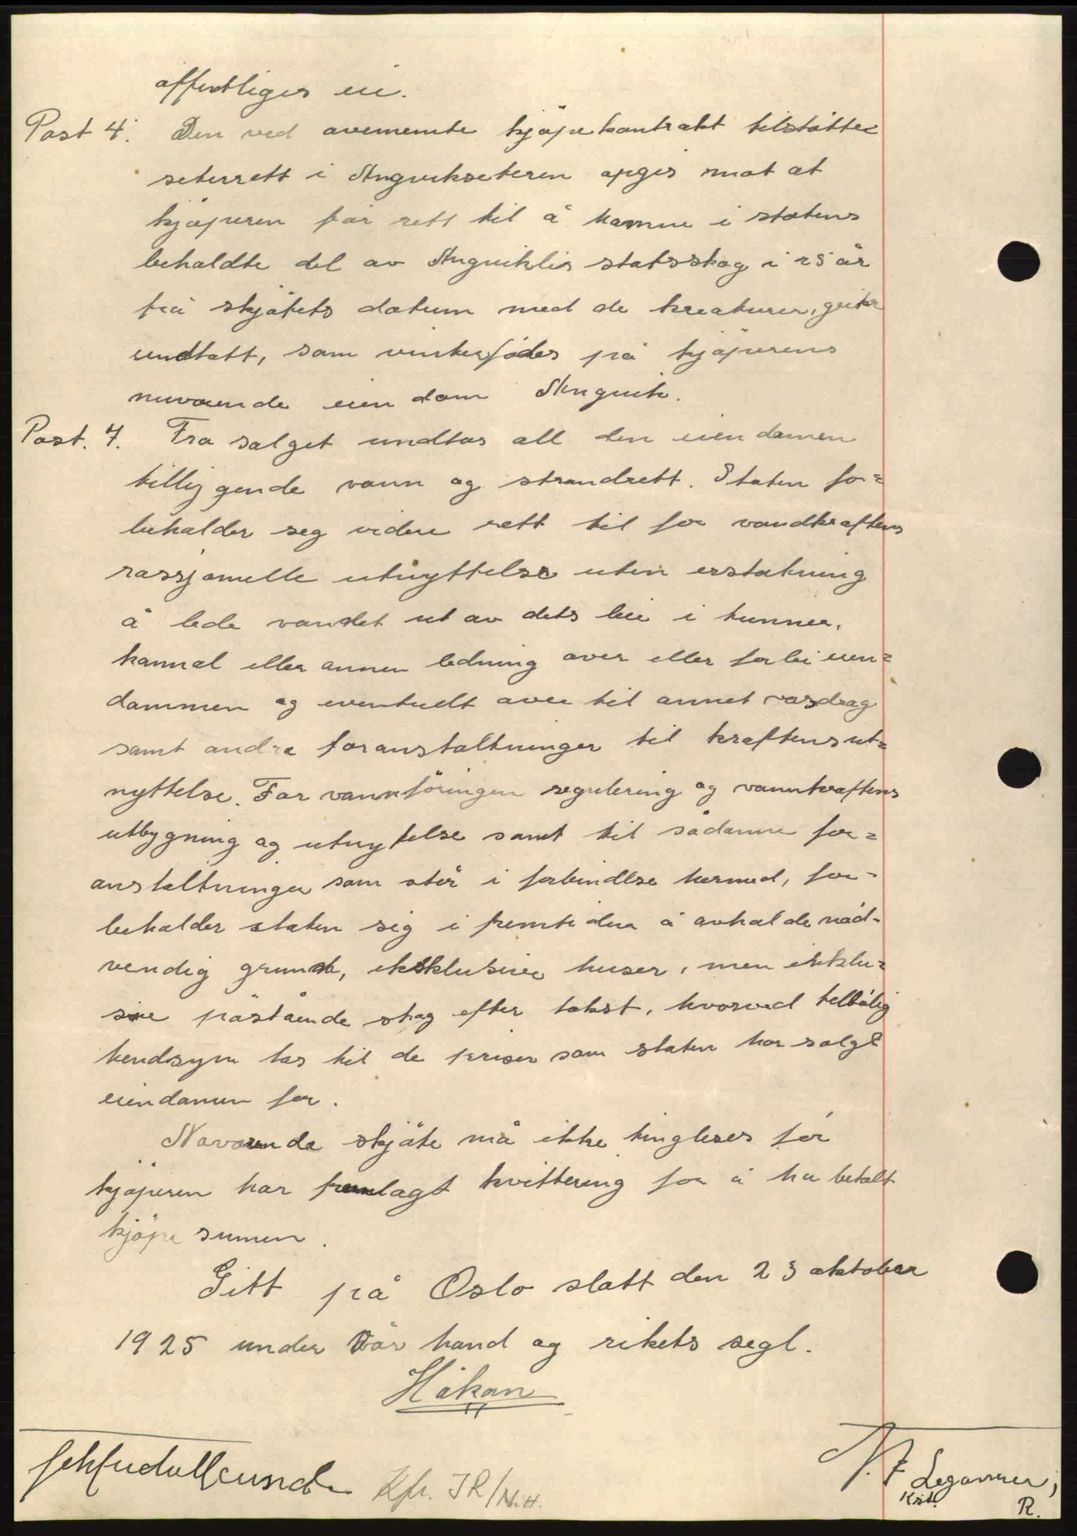 offentliges eie.
Post 4. Den ved ovennemte kjøpekontrakt tilståtte
seterrett i Angvikseteren opgis mot at
kjøperen får rett til å havne i statens
beholdte del av Angviklis statsskog i 25 år
fra skjøtets datum med de kreaturer, geiter
undtatt, som vinterfødes på kjøperens
nuværende eiendom Angvik.
Post. 7. Fra salget undtas all den eiendomen
tilliggende vann og strandrett. Staten for=
beholder seg videre rett til for vandkraftens
rasjonelle utnyttelse uten erstatning
å lede vandet ut av dets leie i tunnel,
kannal eller annen ledning over eller forbi eien=
dommen og eventuelt over til annet vasdrag
samt andre foranstaltninger til kraftens ut=
nyttelse. For vannføringen regulering og vannkraftens
utbygning og utnytelse samt til sådanne for=
anstaltninger som står i forbindlse hermed, for=
beholder staten sig i fremtiden å avholde nød-
vendig grunn, eksklusive huser, men inklu=
sive påstående skog efter takst, hvorved tilbørlig
hendsyn tas til de priser som staten har solgt
eiendomen for.
Nærværende skjøte må ikke tingleses før
kjøperen har fremlagt kvittering for å ha betalt
kjøpesumen.
Gitt på Oslo slott den 23 oktober
1925 under vår hand og rikets segl.
Håkon
Kfr. JR/N.H.
Krst.
R.